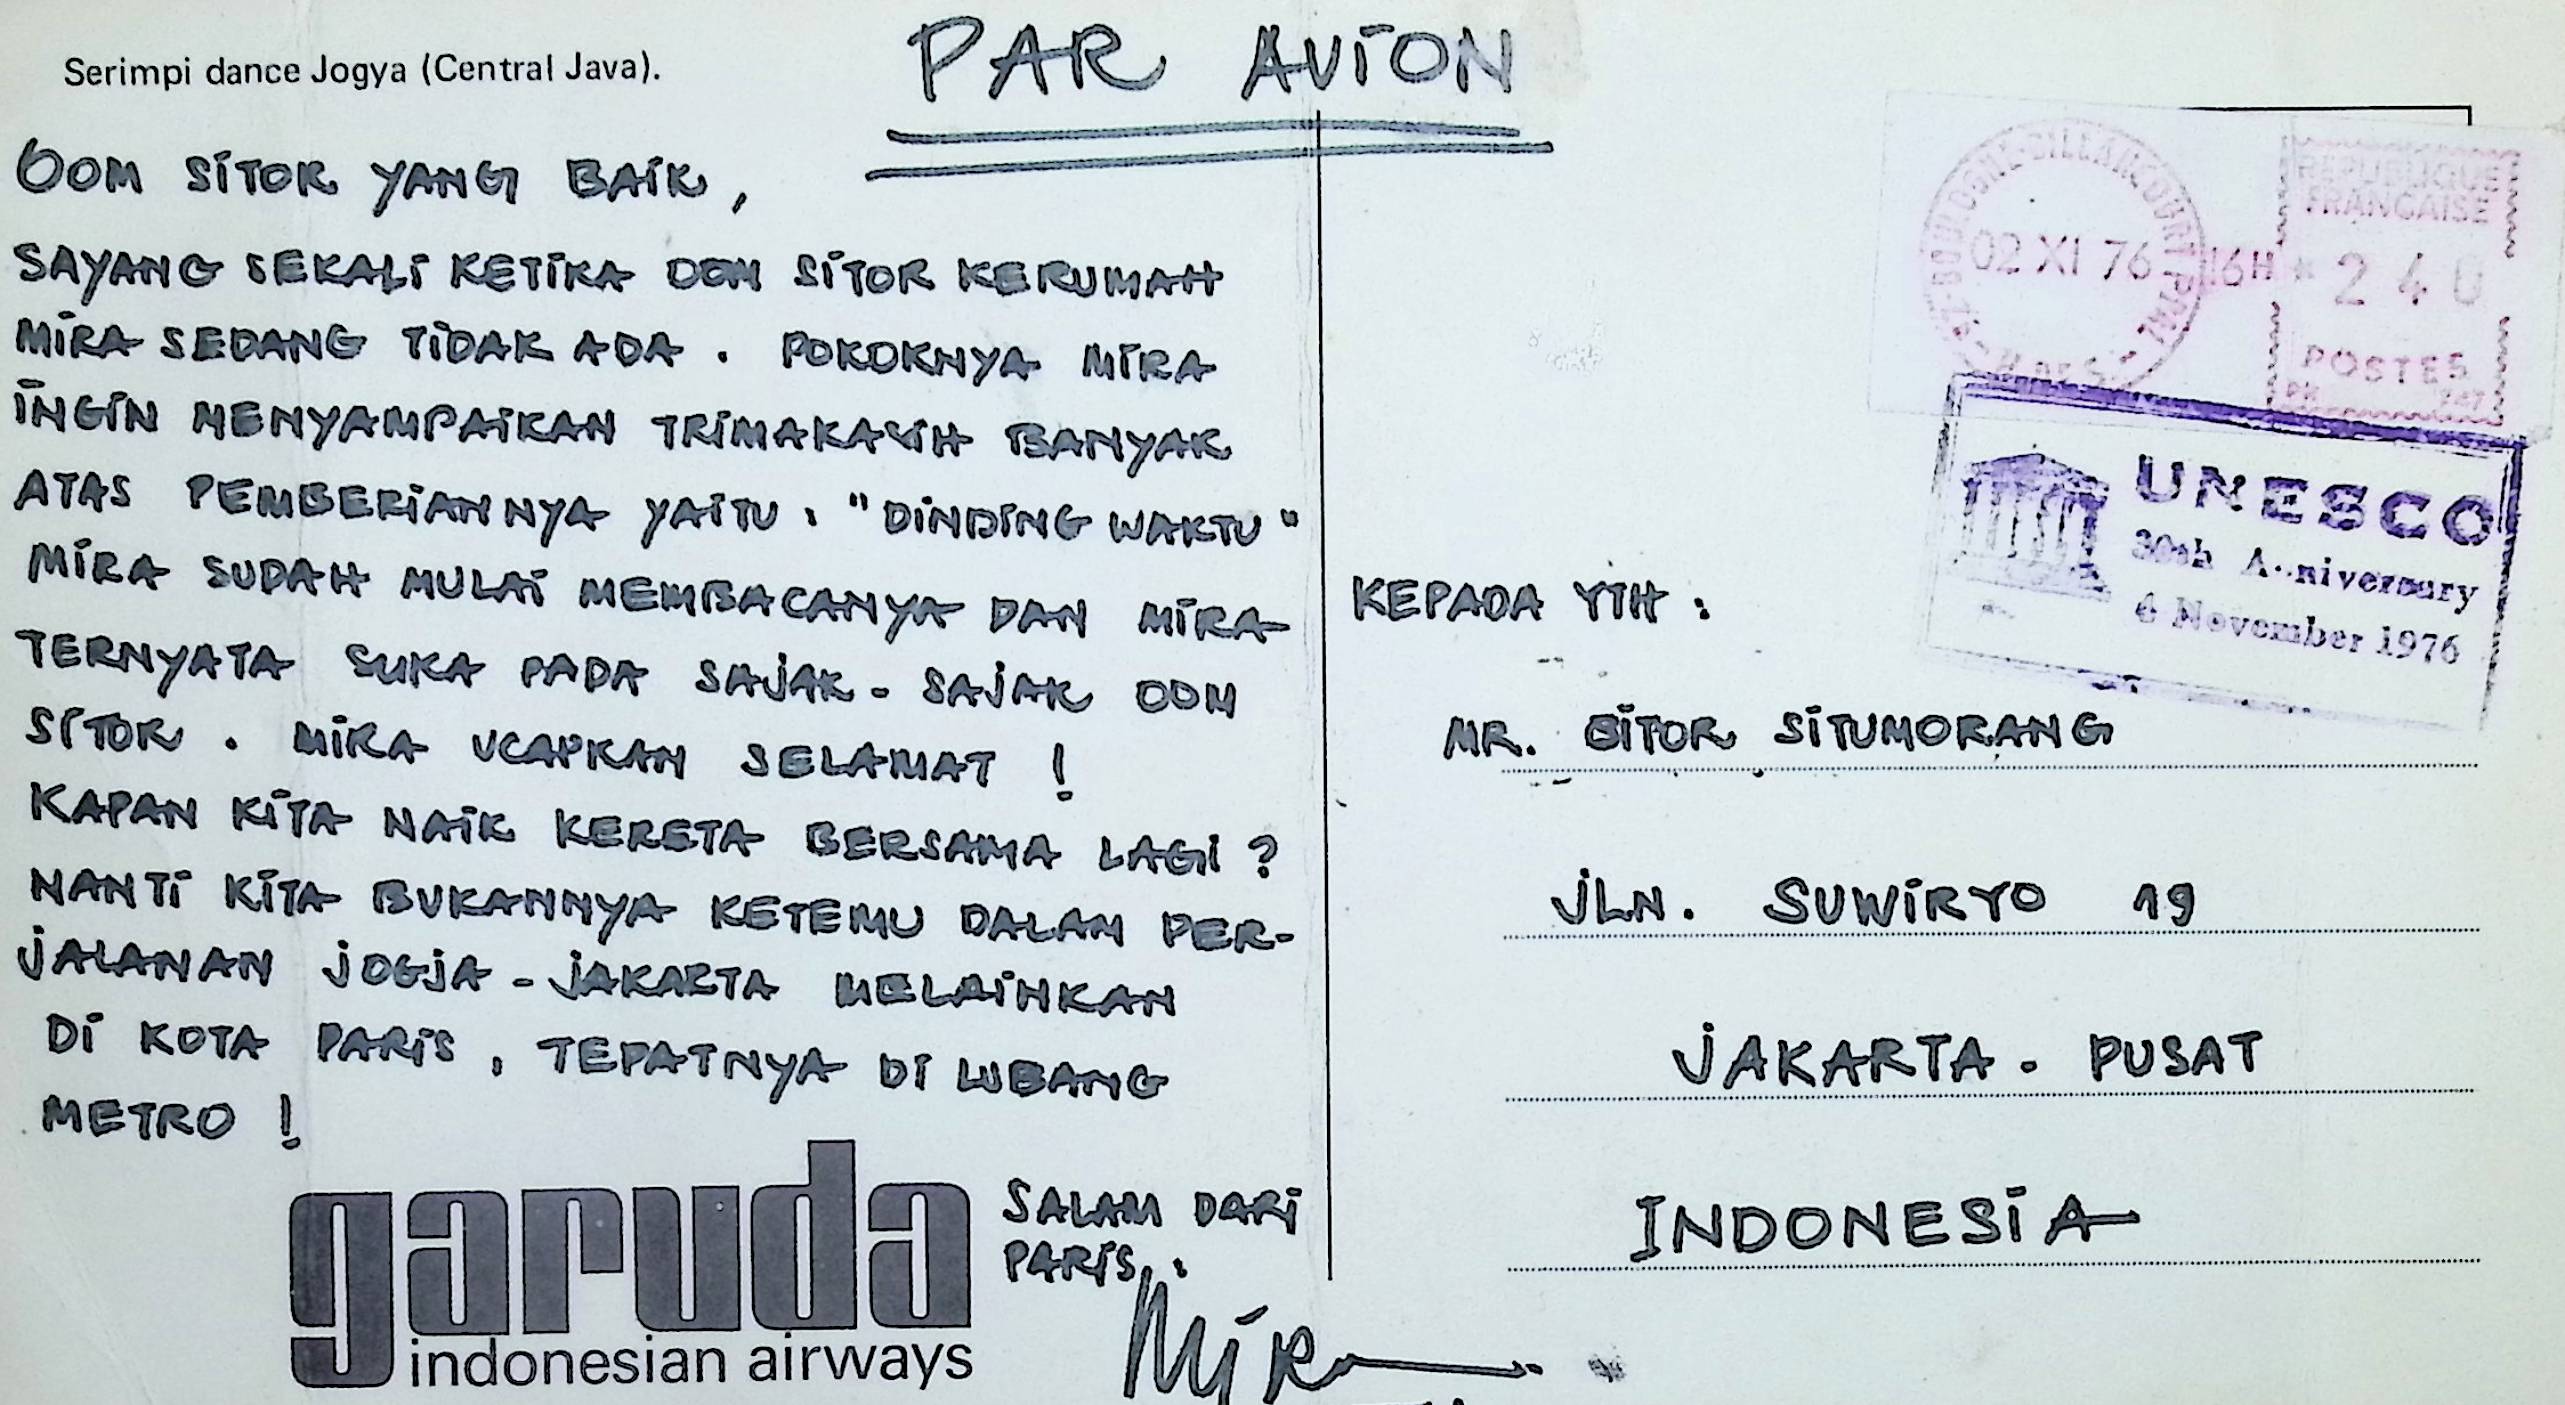 Serimpi dance Jogya (Central Java).
PAR AVION
OOM SITOR YANG BAIK,
SAYANG SEKALI KETIKA OOM SITOR KERUMAH
MIRA SEDANG TIDAK ADA. POKOKNYA MIRA
INGIN MENYAMPAIKAN TRIMAKASIH BANYAK
ATAS PEMBERIANNYA YAITU: "DINDING WAKTU"
MIRA SUDAH MULAI MEMBACANYA DAN MIRA
TERNYATA SUKA PADA SAJAK-SAJAK OOM
SITOR. MIRA UCAPKAN SELAMAT!
KAPAN KITA NAIK KERETA BERSAMA LAGI?
NANTI KITA BUKANNYA KETEMU DALAM PER-
JALANAN JOGJA-JAKARTA MELAINKAN
DI KOTA PARIS, TEPATNYA DI LUBANG
METRO!
SALAM DARI
PARIS,:
Mira
garuda
indonesian airways
BOULOGNE-BILLANCOURT PPAL
02 XI 76 16H
REPUBLIQUE
FRANÇAISE
240
POSTES
UNESCO
30th Anniversary
4 November 1976
KEPADA YTH:
MR. SITOR SITUMORANG
JLN. SUWIRYO 19
JAKARTA-PUSAT
INDONESIA